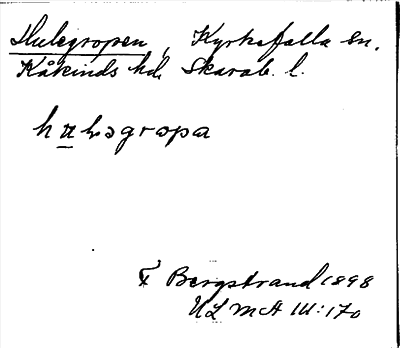 Hulegropen, Kyrkefalla sn.
Kåkinds hd. Skarab. l.
Bergstrand 1898
ULMA III:170